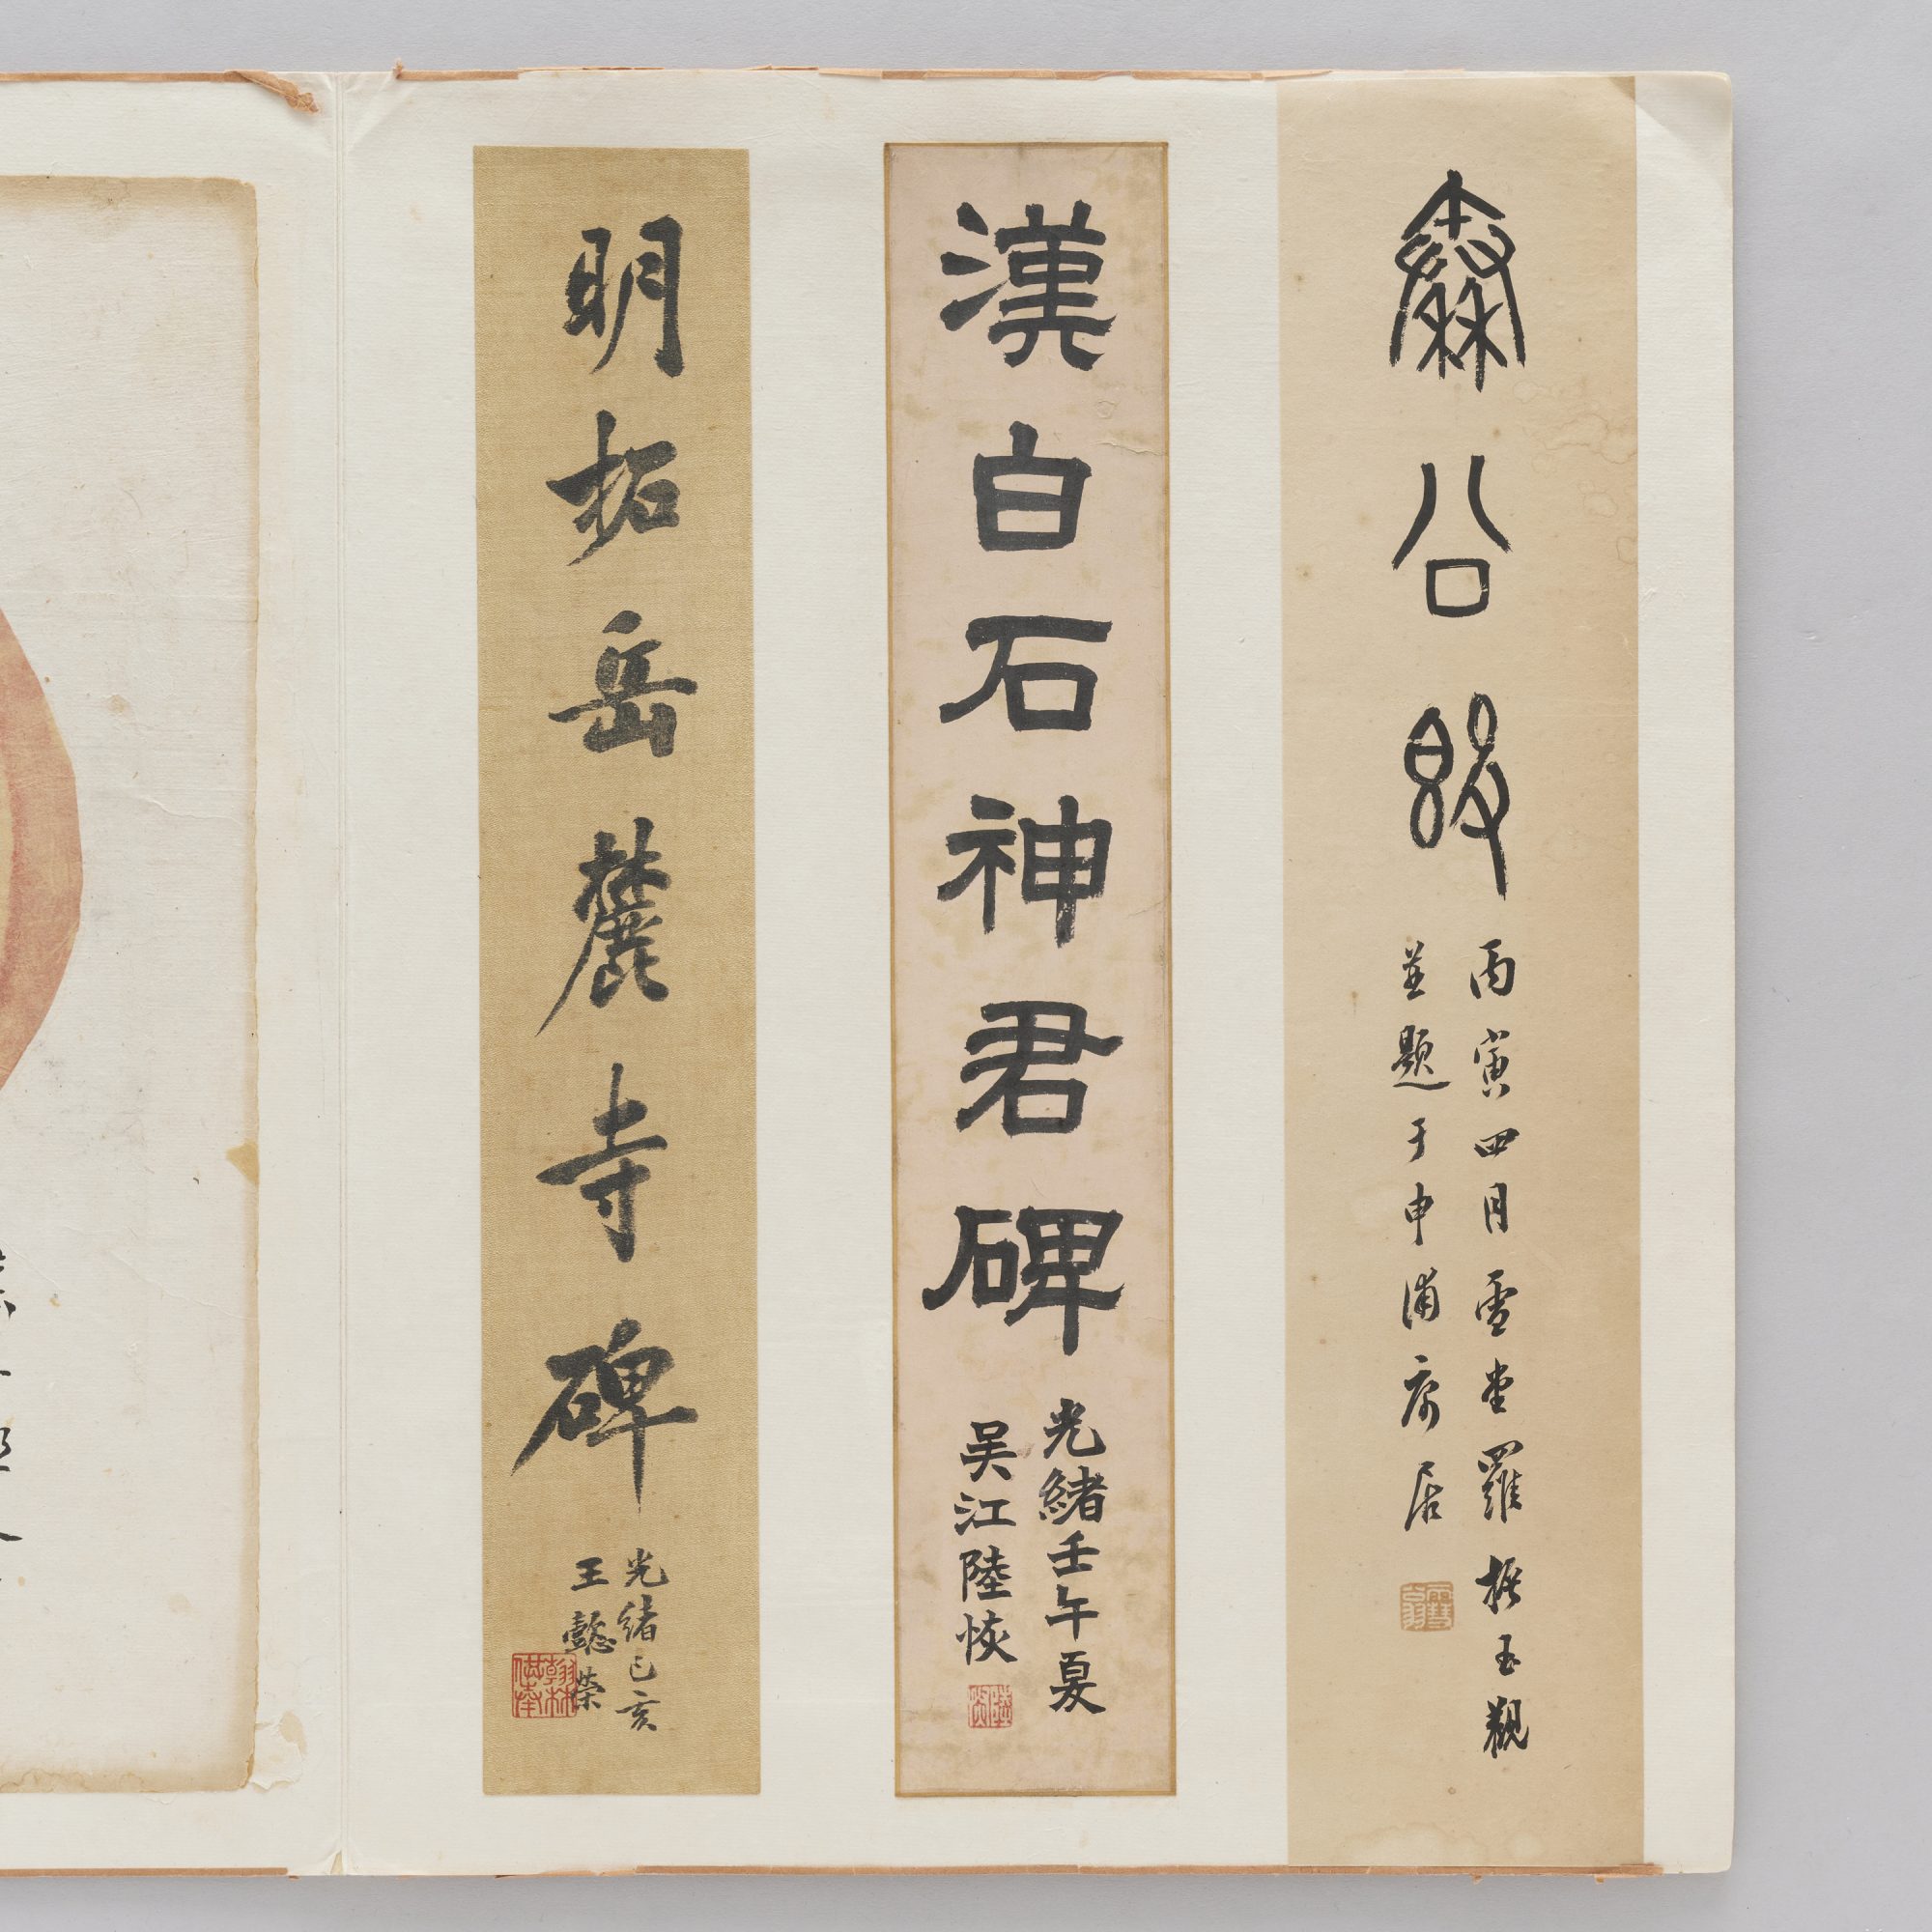 秦公𣪘
丙寅四月雪堂羅振玉觀
並題于申浦寓居
雪翁
漢白石神君碑
光緒壬午夏
吳江陸恢
陸恢
明拓岳麓寺碑
光緒己亥
王懿榮
翰林供奉